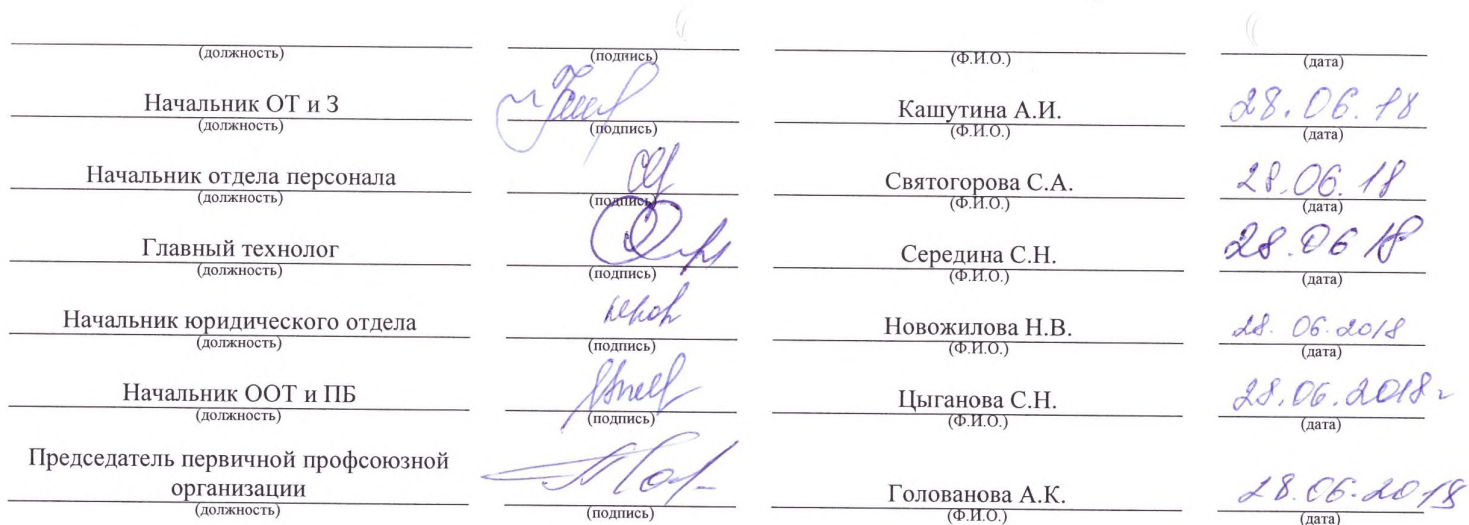 (должность) (подпись) (Ф.И.О.) (дата)
Начальник ОТ и З Кашутина А.И. 28.06.18
(должность) (подпись) (Ф.И.О.) (дата)
Начальник отдела персонала Святогорова С.А. 28.06.18
(должность) (подпись) (Ф.И.О.) (дата)
Главный технолог Середина С.Н. 28.06 18
(должность) (подпись) (Ф.И.О.) (дата)
Начальник юридического отдела Новожилова Н.В. 28.06.2018
(должность) (подпись) (Ф.И.О.) (дата)
Начальник ООТ и ПБ Цыганова С.Н. 28.06.2018г
(должность) (подпись) (Ф.И.О.) (дата)
Председатель первичной профсоюзной
организации Голованова А.К. 28.06.2018
(должность) (подпись) (Ф.И.О.) (дата)